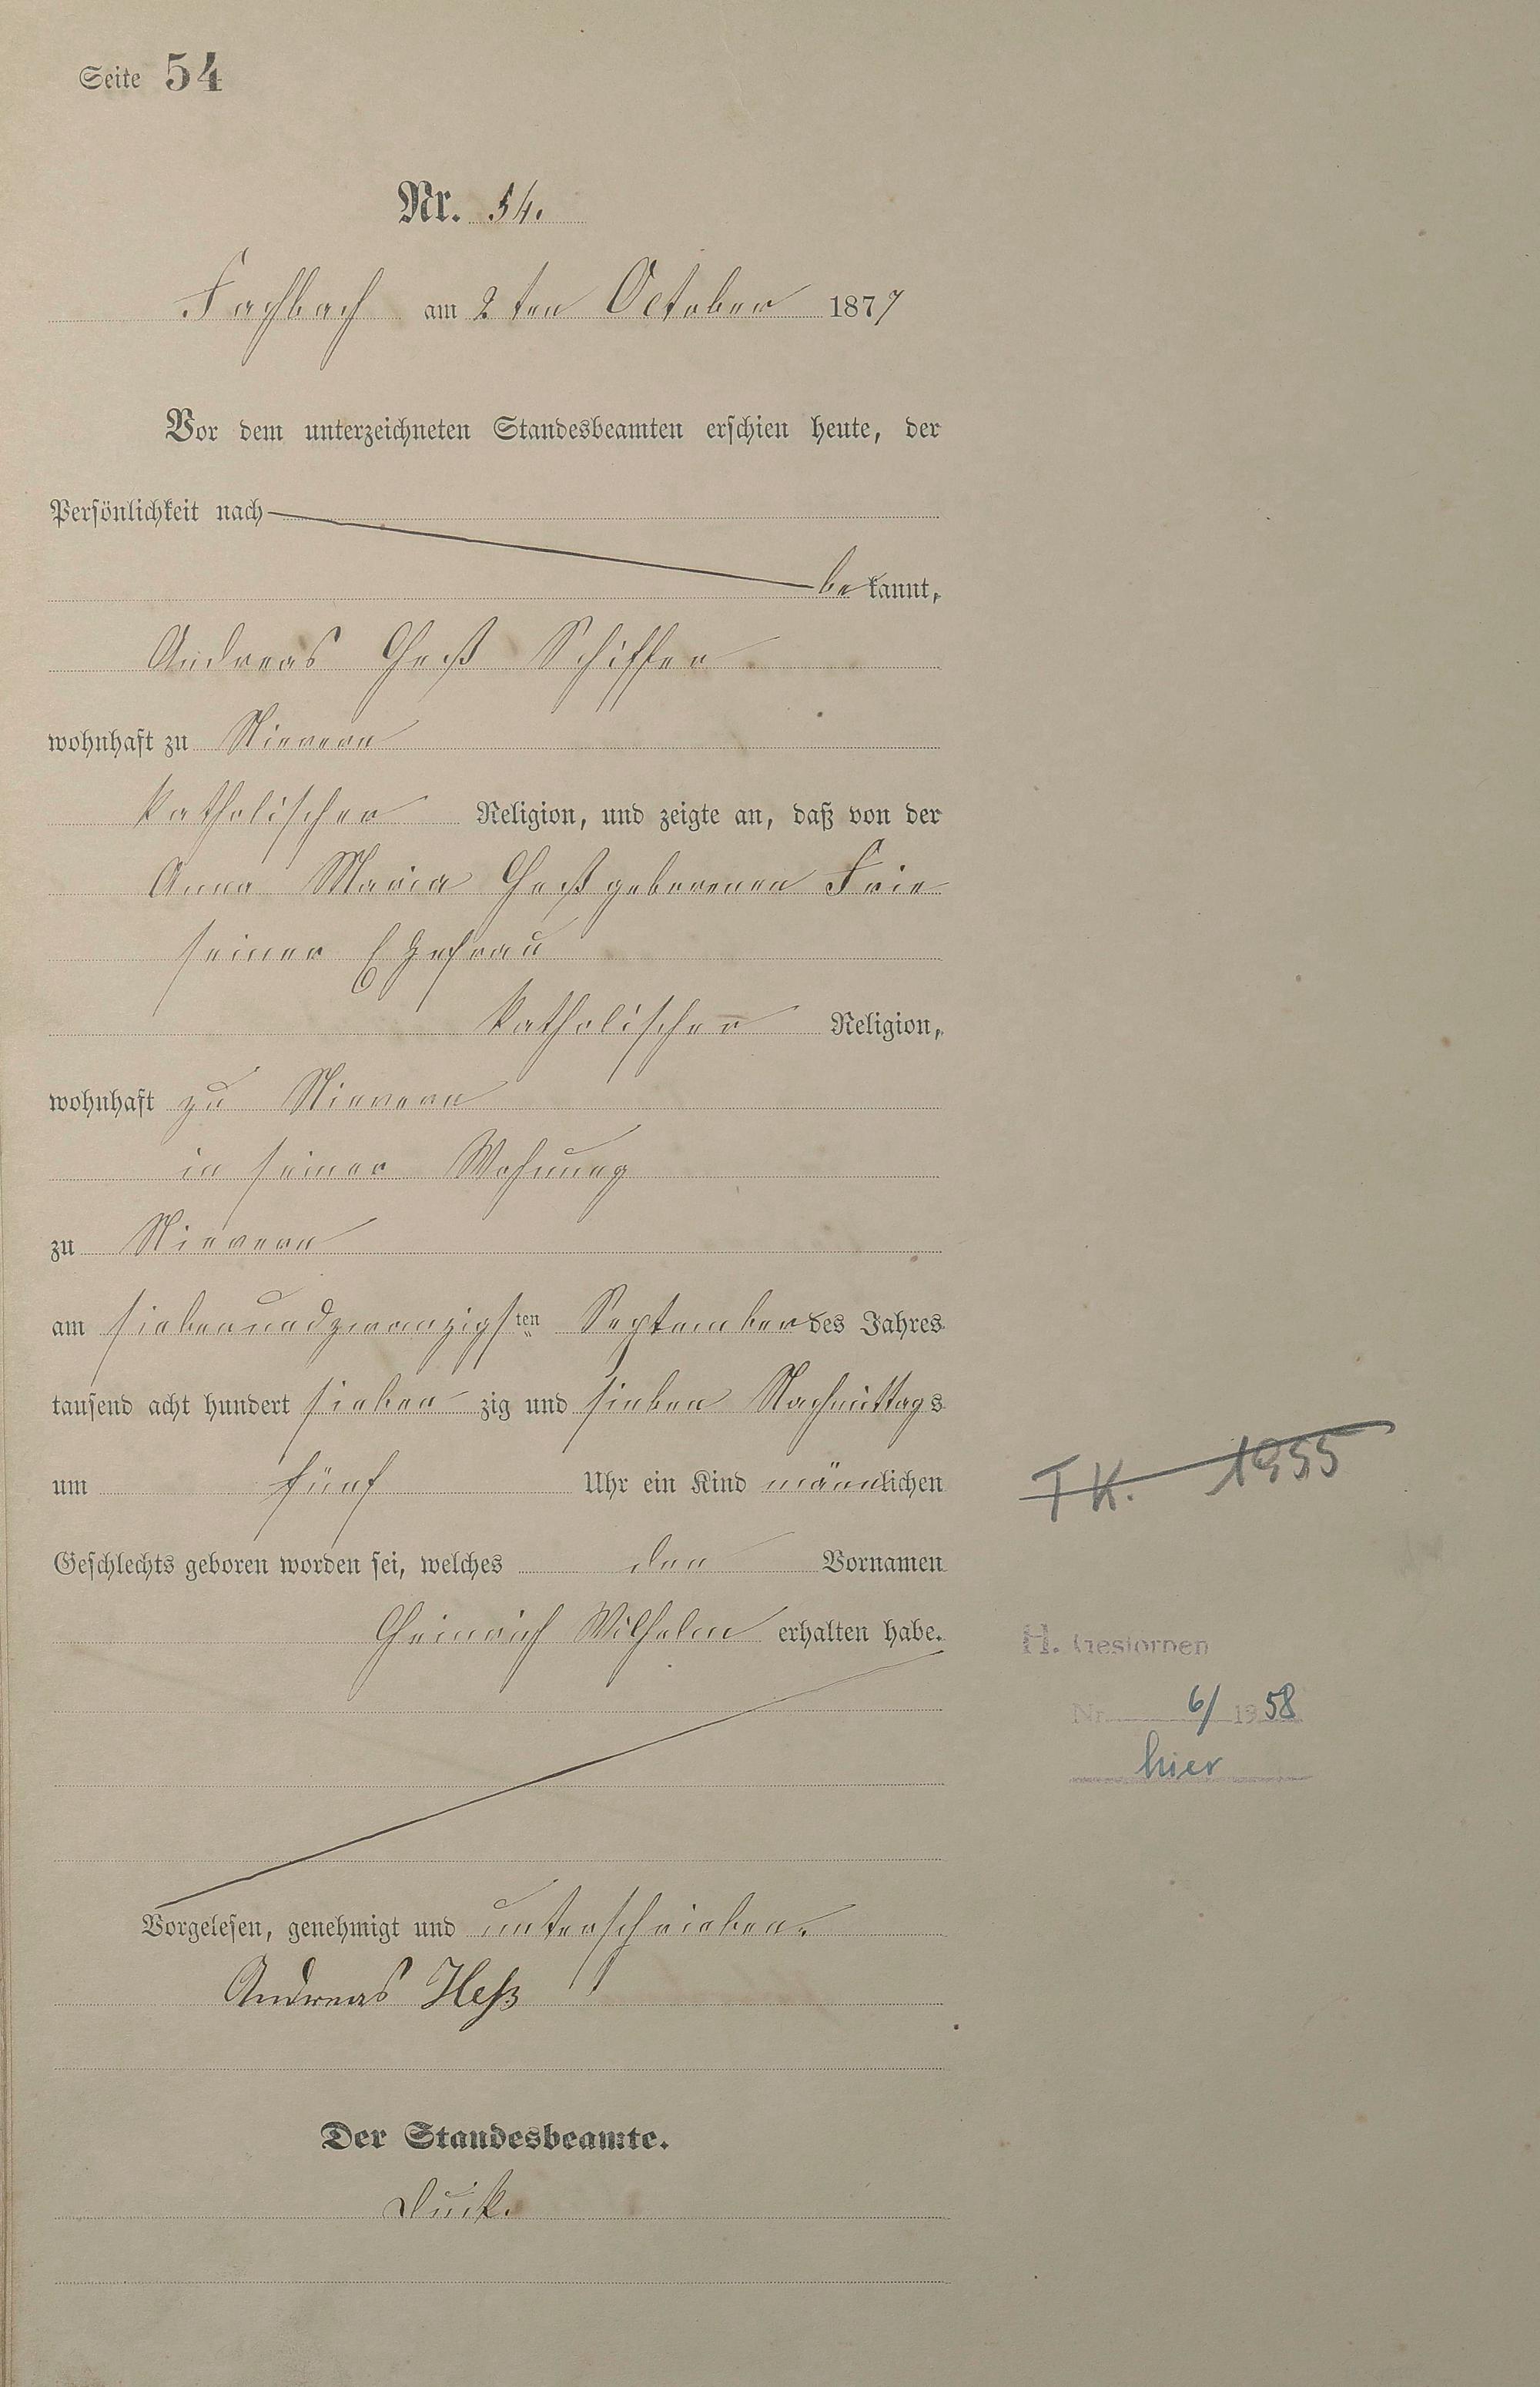 Seite 54
Nr. 54.
Fachbach am 2ten October 1877
Vor dem unterzeichneten Standesbeamten erschien heute, der
Persönlichkeit nach
bekannt,
Andreas Heß Schiffer
wohnhaft zu Nievern
katholischer Religion, und zeigte an, daß von der
Anna Maria Heß geborenen
seiner Ehefrau
katholischer Religion,
wohnhaft zu Nievern
in seiner Wohnung
zu Nievern
am siebenundzwanzigsten September des Jahres
tausend acht hundert siebenzig und sieben Nachmittags
um fünf Uhr ein Kind männlichen
Geschlechts geboren worden sei, welches den Vornamen
Heinrich Wilhelm erhalten habe.
Vorgelesen, genehmigt und unterschrieben.
Andreas Heß
Der Standesbeamte.
T K. 1955
H. Gestorben
Nr. 6/ 1958
hier